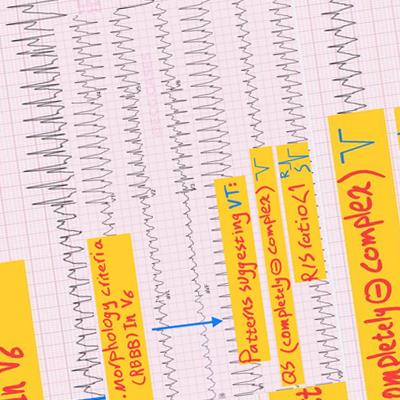 .morphology criteria
(RBBB) In V6
Patterns suggesting VT:
QS (completely ⊖ complex) V
R/S ratio<1 R/S V
in V6
ompletely ⊖ complex) V